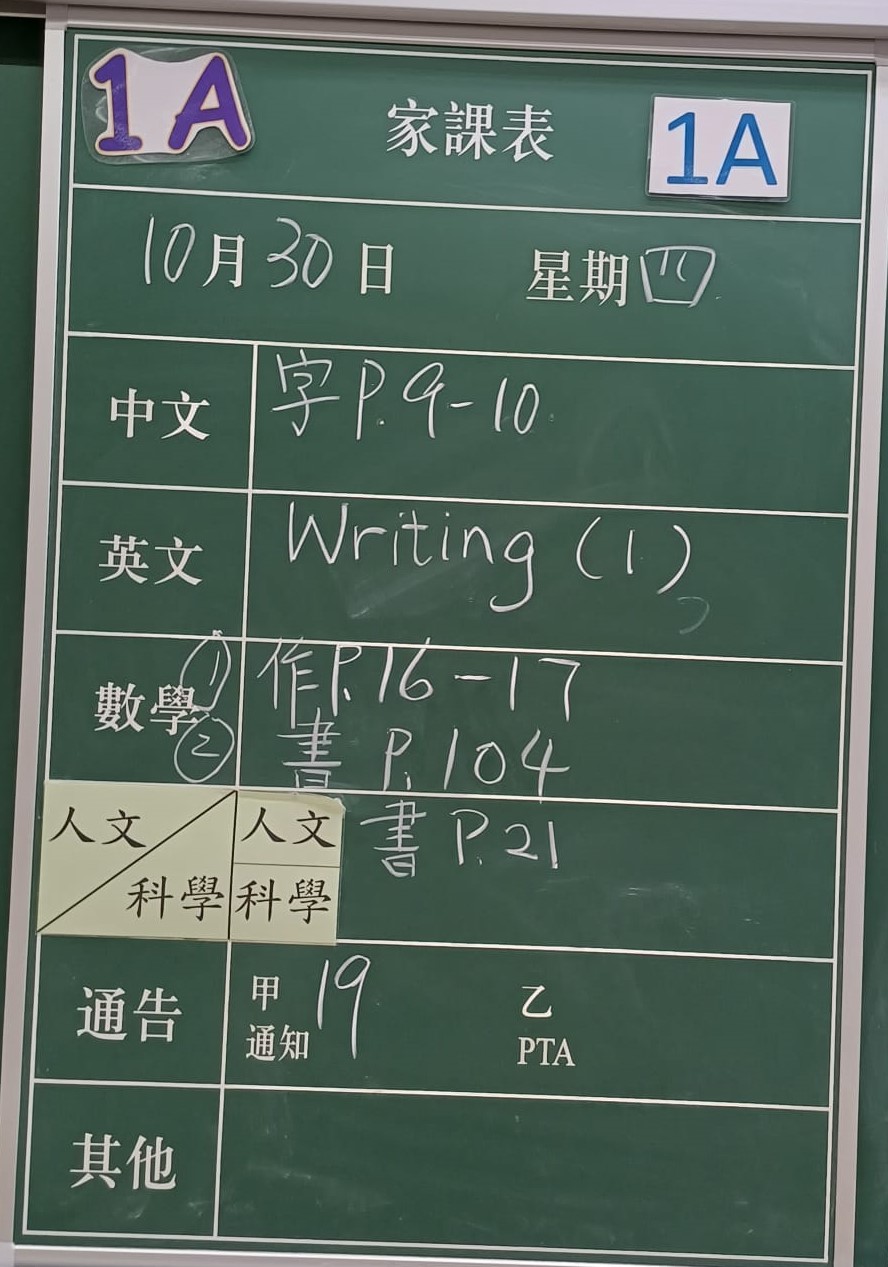 1A 家課表 1A
10月30日 星期四
中文 字P.9-10
英文 Writing (1)
數學 ① 作P.16-17
② 書 P.104
人文 人文 書 P.21
科學 科學
通告 甲 19 乙
通知 PTA
其他